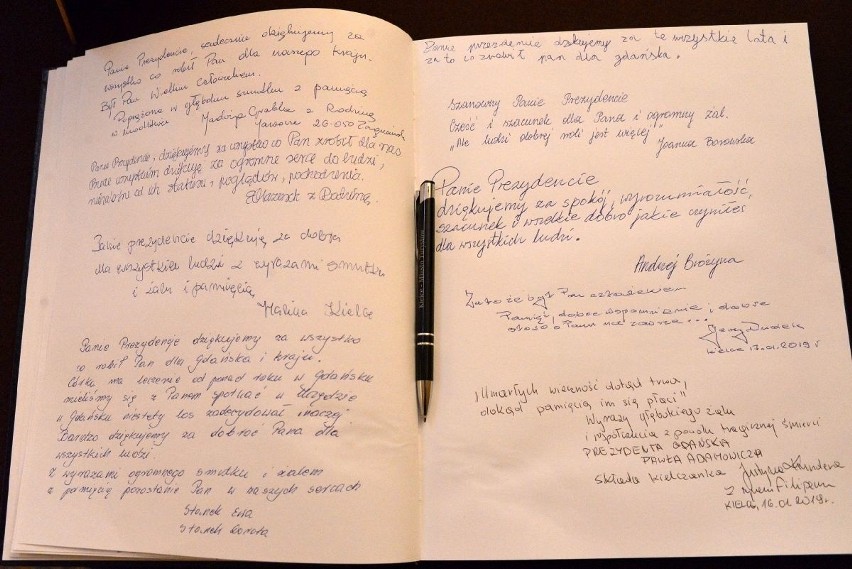 Panie Prezydencie, serdecznie dziękujemy za
wszystko co robił Pan dla naszego kraju.
Był Pan Wielkim Człowiekiem.
Pogrążona w głębokim smutku z pamięcią
w modlitwie Jadwiga Grabka z Rodziną
26-050 Zagnańsk
Panie Prezydencie, dziękujemy za wszystko co Pan zrobił dla nas
Przede wszystkim dziękuję za ogromne serce do ludzi,
niezależnie od ich statusu, poglądów, pochodzenia.
z Rodziną
Panie prezydencie dziękuję za dobro
dla wszystkich ludzi z wyrazami smutku
i żalu i pamięcią
Halina Kielce
Panie Prezydencie dziękujemy za wszystko
co robił Pan dla Gdańska i kraju.
Córka ma leczenie od ponad roku w Gdańsku
mieliśmy się z Panem spotkać w Urzędzie
w Gdańsku niestety los zadecydował inaczej
Bardzo dziękujemy za dobroć Pana dla
wszystkich ludzi
z wyrazami ogromnego smutku i żalem
z pamięcią pozostanie Pan w naszych sercach
Stanek Ewa
Stanek Dorota
Panie prezydencie dziękujemy za te wszystkie lata i
za to co zrobił pan dla gdańska.
Szanowny Panie Prezydencie
Cześć i szacunek dla Pana i ogromny żal.
„Ale ludzi dobrej woli jest więcej"
Joanna Borowska
Panie Prezydencie
dziękujemy za spokój, wyrozumiałość,
szacunek i wszelkie dobro jakie czyniłeś
dla wszystkich ludzi.
Andrzej Brożyna
Za to że był Pan człowiekiem
Pamięć, dobre wspomnienie i dobre
słowo o Panu na zawsze...
Jerzy
Kielce 17.01.2019 r
„Umarłych wieczność dotąd trwa,
dokąd pamięcią im się płaci"
Wyrazy głębokiego żalu
i współczucia z powodu tragicznej śmierci
PREZYDENTA GDAŃSKA
PAWŁA ADAMOWICZA
składa kielczanka Justyna
z synem Filipem
KIELCE, 16.01.2019r.
Kielce - Miasto Turystów